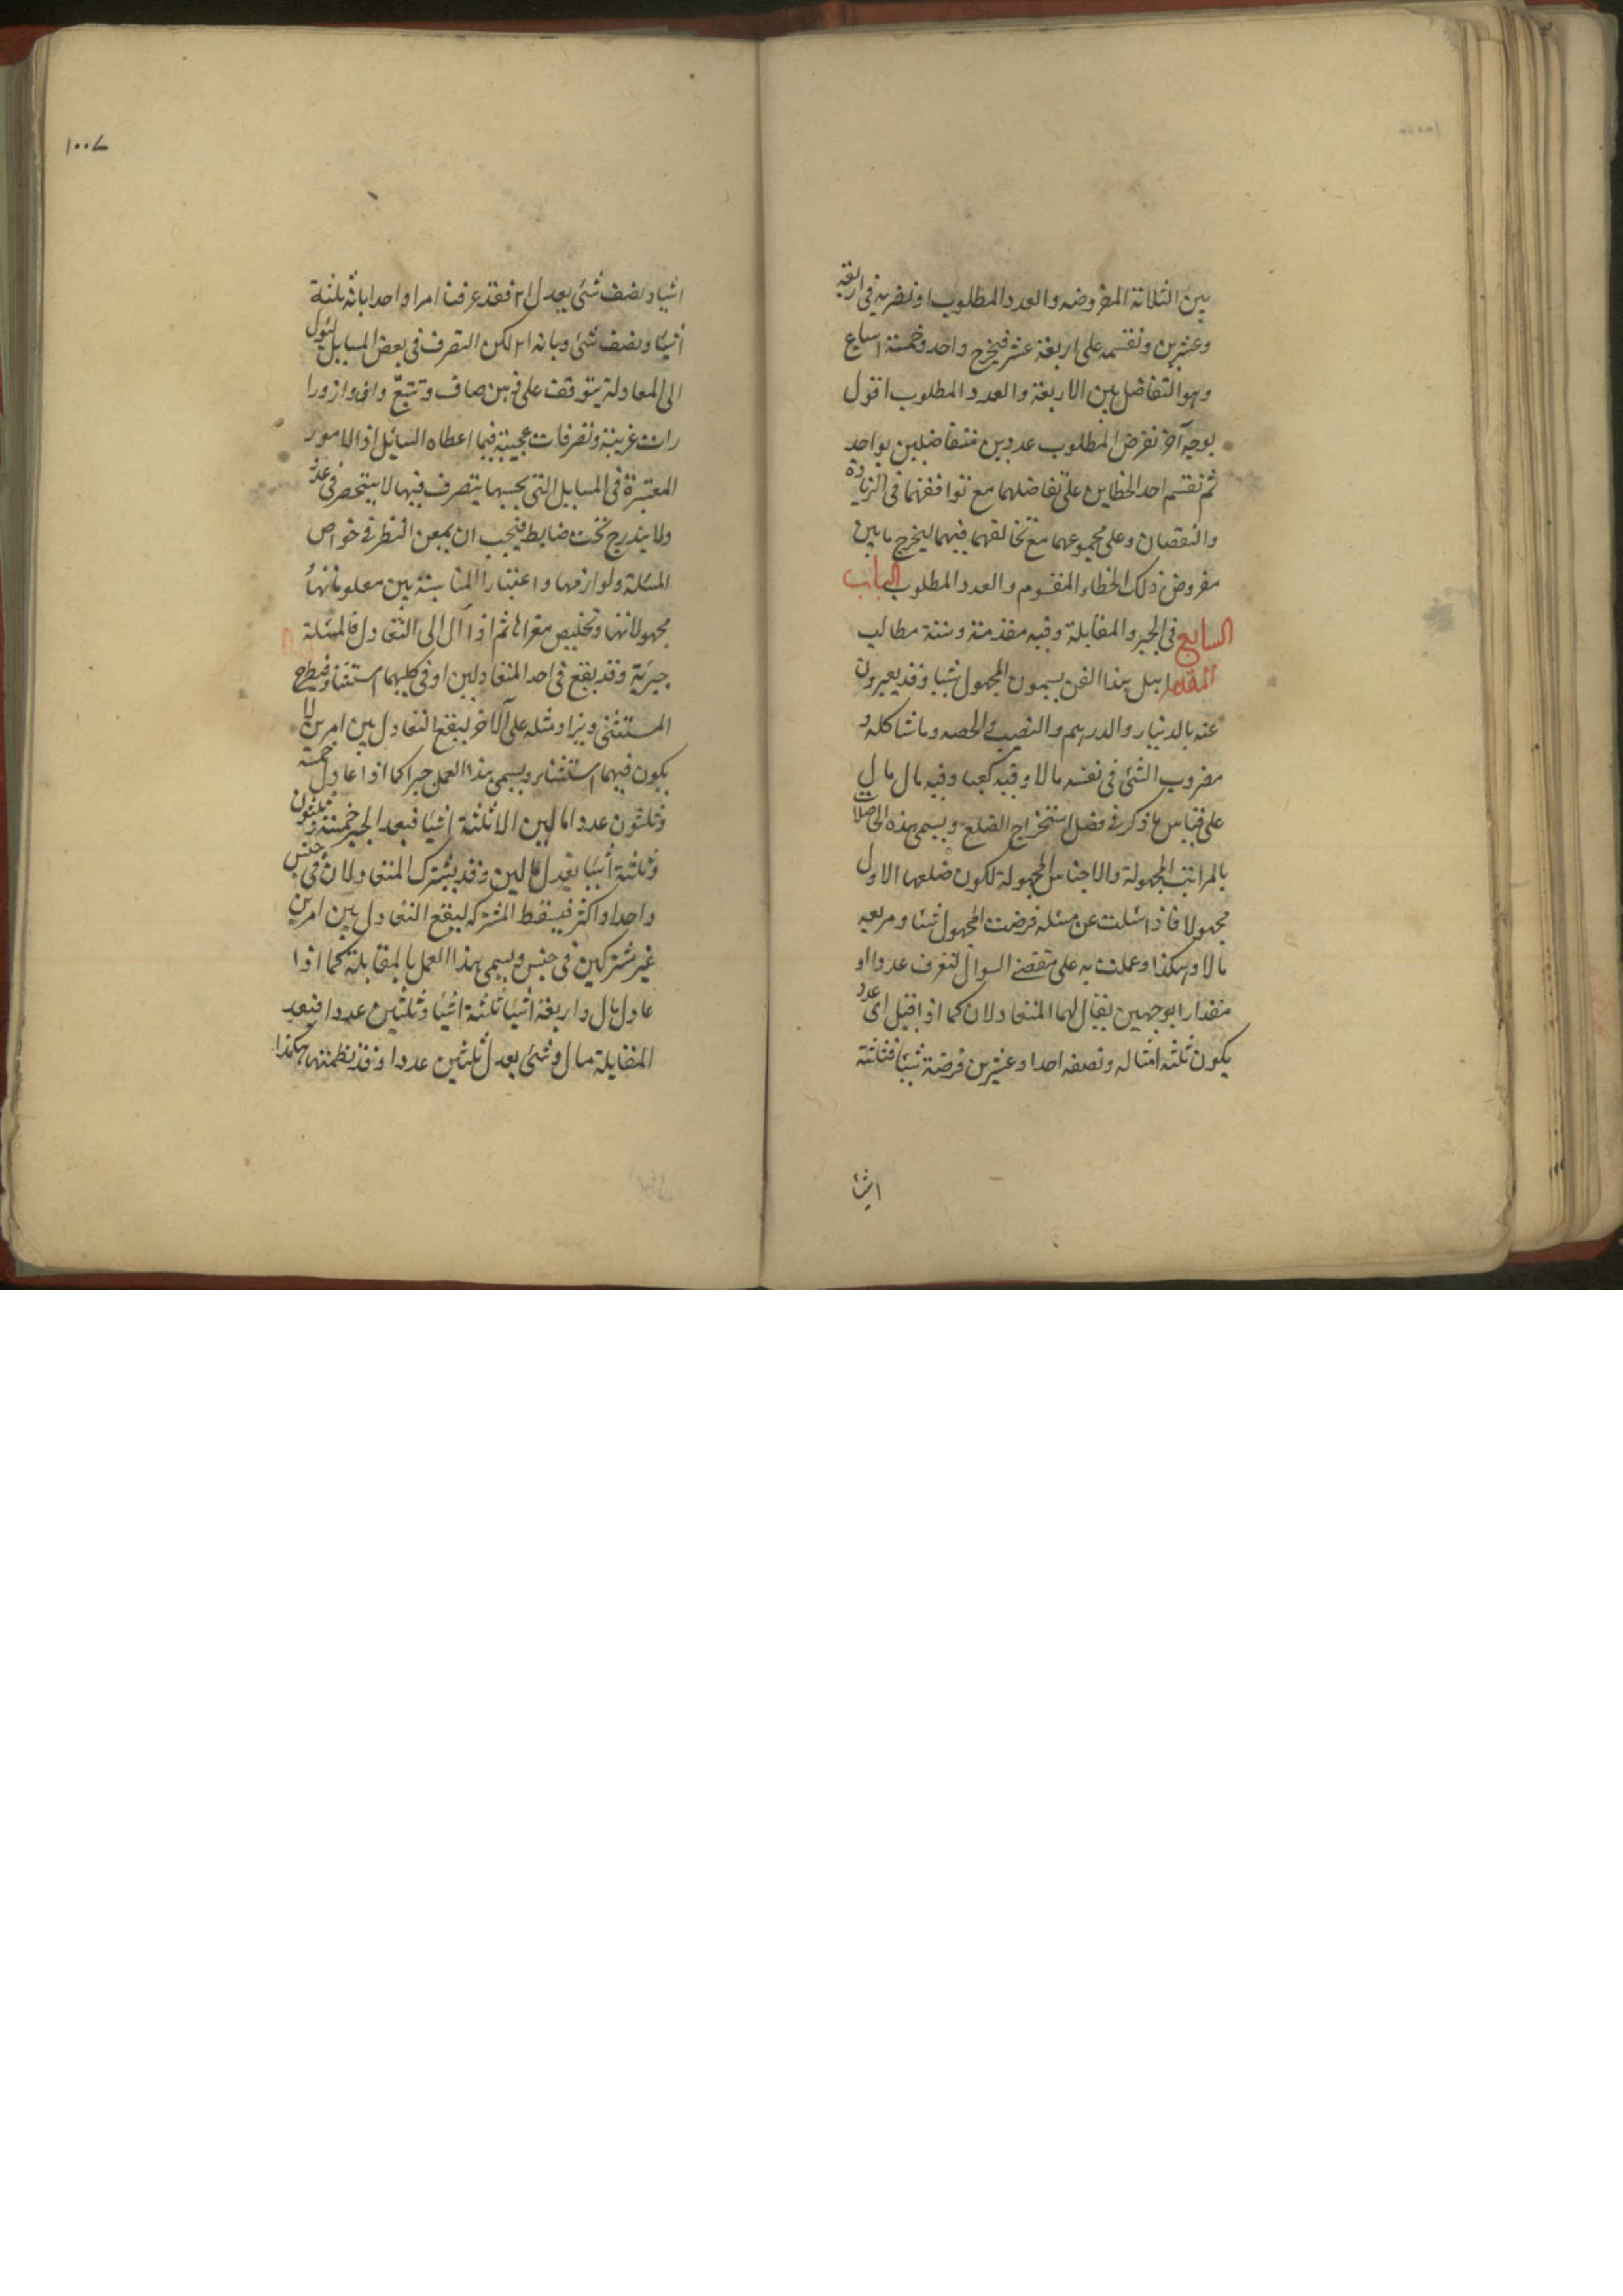 بين الثلاثة المفروضه والعدد المطلوب او نضربه فى اربعة
وعشرين ونقسمه على اربعة عشر فيخرج واحد وخمسة اسباع
وهو التفاضل بين الاربعة والعدد المطلوب اقول
بوجه آخر نفرض المطلوب عددين متفاضلين بواحد
ثم نقسم احد الخطاين على تفاضلهما مع توافقهما فى الزيادة
والنقصان وعلى مجموعهما مع تخالفهما فيهما ليخرج ما بين
مفروض ذلك الخطاء المقسوم والعدد المطلوب الباب
السابع فى الجبر والمقابلة وفيه مقدمة وستة مطالب
المقدمة اهل هذا الفن يسمون المجهول شيئا وقد يعبرون
عنه بالدينار والدرهم والنصيب والحصه وما شاكله و
مضروب الشئ فى نفسه مالا وفيه كعبا وفيه مال مال
على قياس ما ذكر فى فصل استخراج الضلع ويسمى هذه الحاصلات
بالمراتب المجهولة والاجناس المجهولة لكون ضلعها الاول
مجهولا فاذا سئلت عن مسئله فرضت المجهول شيئا ومربعه
مالا وهكذا وعملت به على مقتضى السوال لتعرف عددا او
مقدارا بوجهين يقال لهما المتعادلان كما اذا قيل اى عدد
يكون ثلثه امثاله ونصفه احدا وعشرين فرضته شيئا فثلثة
اشيا
١٠٠٧
اشيا ونصف شئ يعدل ٢١ فقد عرفنا امرا واحدا بانه ثلثة
اشيا ونصف شئ وبانه ٢١ لكن التصرف فى بعض المسايل ليؤل
الى المعادلة يتوقف على ذهن صاف وتتبع واف وازورا
رات غريبة وتصرفات عجيبة فيما اعطاه السايل اذ الامور
المعتبرة فى المسايل التى بحسبها يتصرف فيها لا ينحصر فى عد
ولا يندرج تحت ضابط فيجب ان يمعن النظر فى خواص
المسئلة ولوازمها واعتبار المناسبة بين معلوماتها و
مجهولاتها وتخليص مغزاها ثم اذا آل الى التعادل فالمسئلة
جبرية وقد يقع فى احد المتعادلين او فى كليهما استثناء فيطرح
المستثنى ويزاد مثله على الآخر ليقع التعادل بين امرين لا
يكون فيهما استثناء ويسمى هذا العمل جبرا كما اذا عادل خمسة
وثلثون عددا مالين الا ثلثة اشيا فبعد الجبر خمسة وثلثون
وثلثة اشيا يعدل مالين وقد يشترك المتعادلان فى جنس
واحد او اكثر فيسقط المشتركه ليقع التعادل بين امرين
غير مشتركين فى جنس ويسمى هذا العمل بالمقابلة كما اذا
عادل مال واربعة اشيا ثلثة اشيا وثلثين عددا فبعد
المقابلة مال وشئ يعدل ثلثين عددا وقد نظمتها هكذا